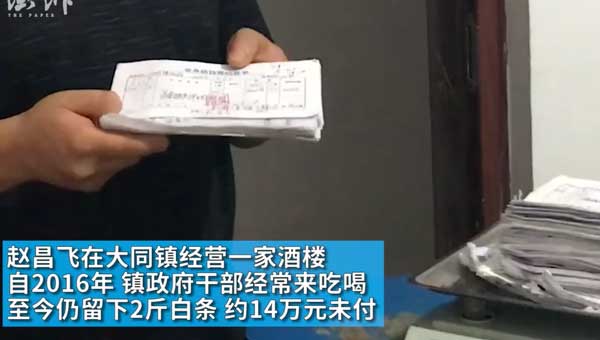 澎湃
THE PAPER
赵昌飞在大同镇经营一家酒楼
自2016年 镇政府干部经常来吃喝
至今仍留下2斤白条 约14万元未付